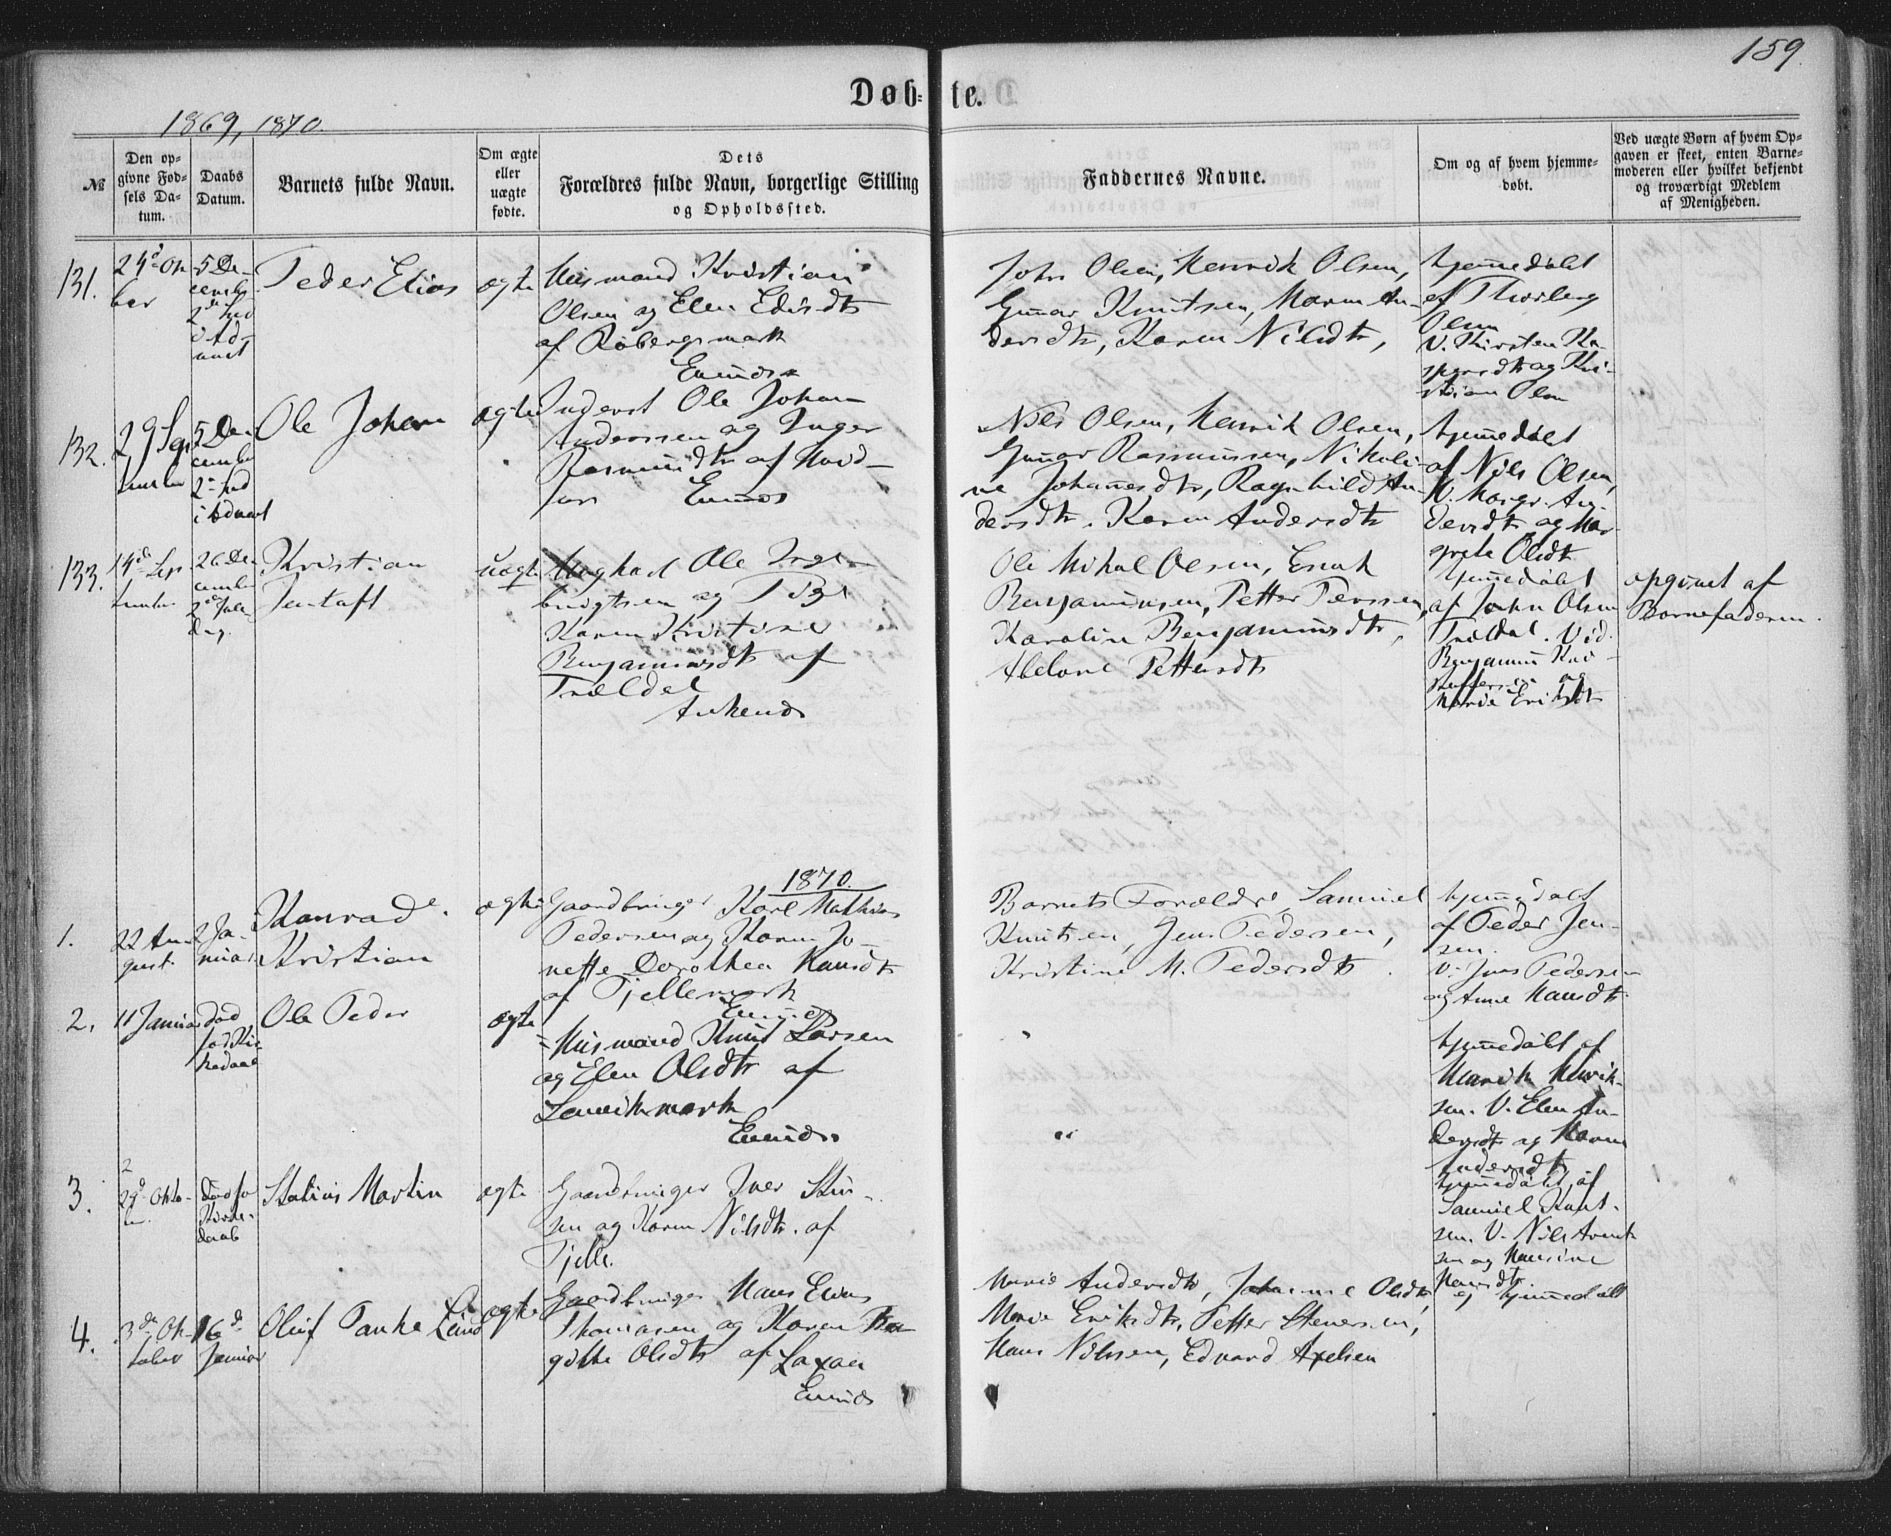 159.
Døb= te.
1869, 1870.
№
Den op=
givne Fød=
sels Da=
tum.
Daabs
Datum.
Barnets fulde Navn.
Om ægte
eller
uægte
fødte.
Dets
Forældres fulde Navn, borgerlige Stilling
og Opholdssted.
Faddernes Navne.
Om og af hvem hjemme=
døbt.
Ved uægte Børn af hvem Op=
gaven er skeet, enten Barne=
moderen eller hvilket bekjendt
og troværdigt Medlem
af Menigheden.
131.
5 De-
cembr
Peder Elias
ægte
Husmand Kristian
Olsen og Elen
af Råbergsmark
Evenæs
John Olsen, Henrik Olsen,
Gunar Knutsen, Maren An-
dersdtr, Karen Nilsdtr,
hjemmedøbt
af Thorberg
Olsen
V. Kirsten
og Kri-
stian Olsen
132.
29 Sep
tember
5 De-
cember
2den Snd
i Advent
Ole Johan
ægte
Inderst Ole Johan
Anderssen og Inger
Rasmusdtr af
Evenæs
Nils Olsen, Henrik Olsen,
Gunar Rasmussen, Nikoli-
ne Johannesdtr, Ragnhild An-
dersdtr. Karen Andersdtr
hjemmedøbt
af Nils Olsen,
V. Margr. An-
dersdtr og Mar-
grete Olsdtr
133.
14de Sep
tember
26 De-
cember
2den Jule
dag.
Kristian
Jentoft
uægte
Ungkarl Ole Inge-
brigtsen og Pige
Karen Kristine
Benjaminsdtr af
Trældal
Ankenes
Ole Mikal Olsen, Enok
Benjaminsen, Petter Perssen,
Karolin Benjaminsdtr,
Abelone Pettersdtr
hjemmedøbt
af John Olsen
Trældal. Vid.
Benjamin Kri-
stoffersen og
Marie Eriksdtr
opgivet af
Barnefaderen.
1870.
1.
22 Au-
gust.
2 Ja-
nuar
Konrad
Kristian
ægte
Gaardbruger Karl Mathias
Pedersen og Karen Jo-
nette Dorothea Hansdtr
af Tjellemark
Evenæs
Barnets Forældre Samuel
Knutsen, Jens Pedersen,
Kristine M. Pedersdtr.
hjemmedøbt
af Peder Jen-
sen.
V. Jens Pedersen
og Anne Hansdtr.
2.
11 Januar
død
før Kir
kedaab
Ole Peder
ægte
Husmand Knut Larsen
og Elen Olsdtr af
Lenvikmark
Evenæs
hjemmedøbt af
Henrik Henrik-
sen. V. Elen An-
dersdtr og Maren
Andersdtr
3.
29de Okto-
ber.
død før
Kirke-
daab
Statius Martin
ægte
Gaardbruger Iver
sen og Karen Nilsdtr. af
Tjelle.
hjemmedøbt af
Samuel Knut-
sen. V. Nils
sen og Hansine
Hansdtr.
4.
3de Ok-
tober
16de
Januar
Oluf Tanke Lund
ægte
Gaardbruger Hans
Thomasen og Karen Bir
gitte Olsdtr af Laxaa
Evenæs
Marie Andersdtr, Johanne Olsdtr,
Marie Eriksdtr, Petter Steversen,
Hans Nilssen, Edvard Axelsen
ej hjemmedøbt